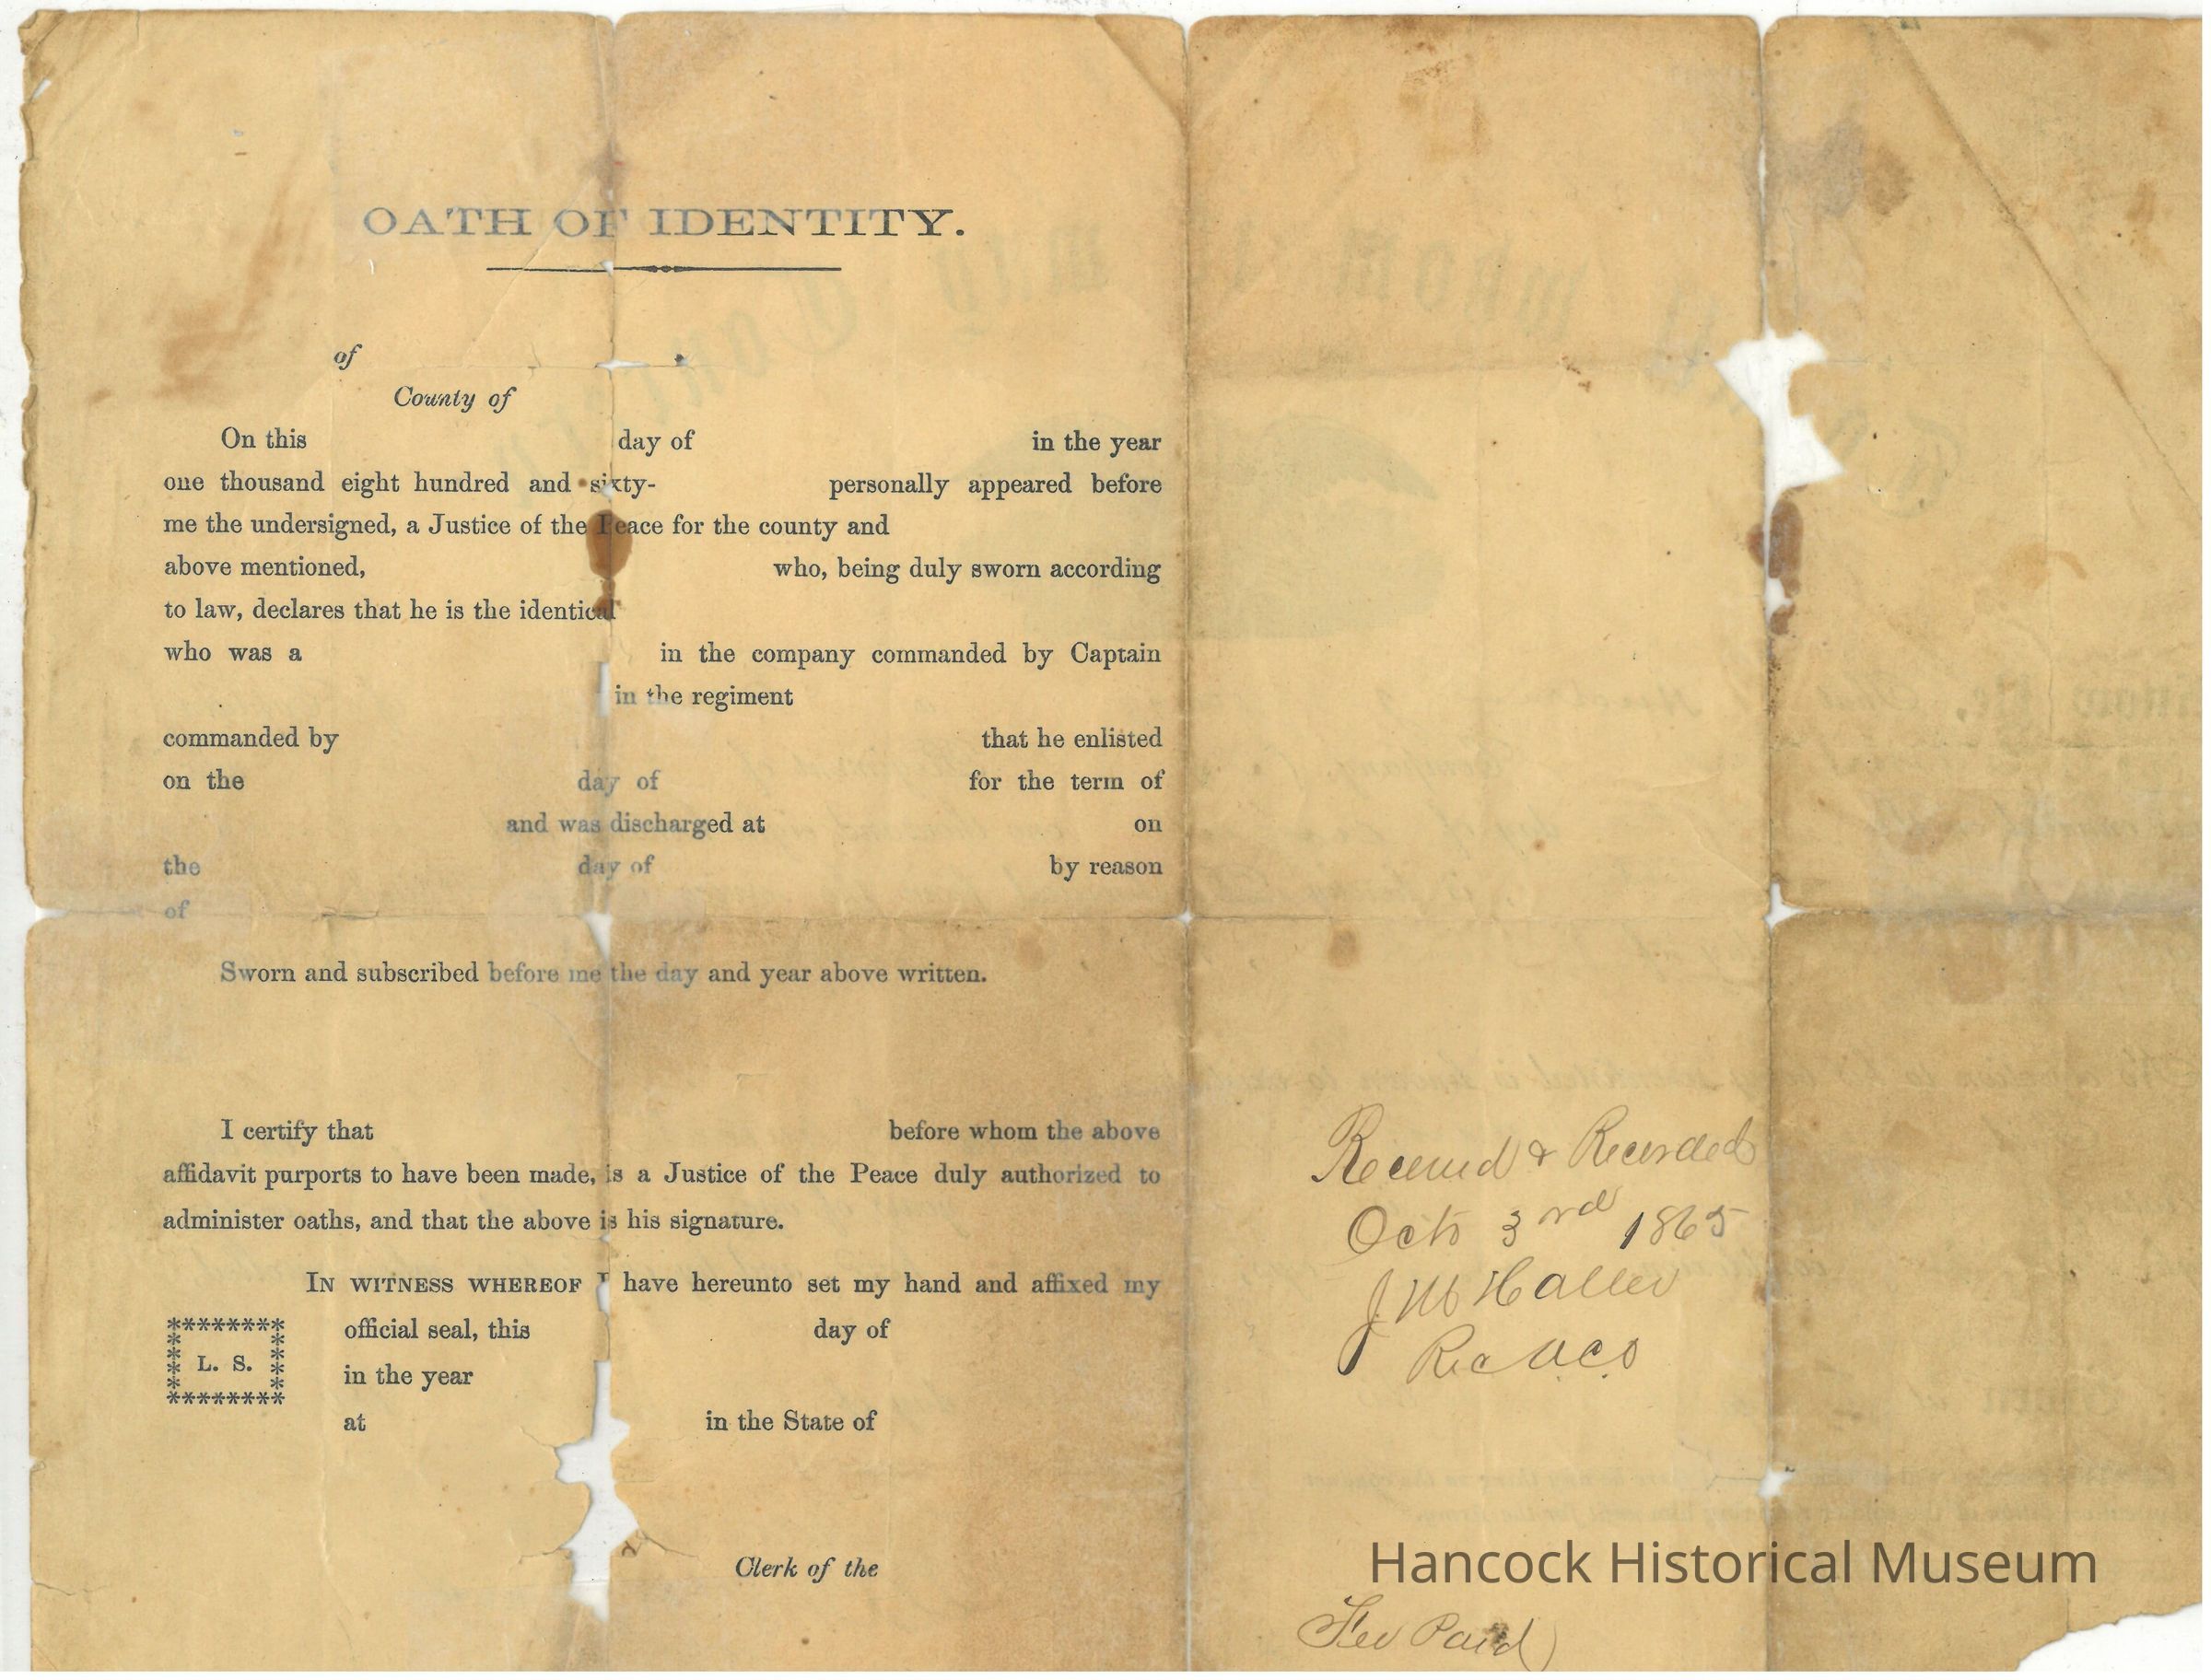 OATH OF IDENTITY.
of
County of
On this day of in the year
one thousand eight hundred and sixty- personally appeared before
me the undersigned, a Justice of the Peace for the county and
above mentioned, who, being duly sworn according
to law, declares that he is the identical
who was a in the company commanded by Captain
in the regiment
commanded by that he enlisted
on the day of for the term of
and was discharged at on
the day of by reason
of
Sworn and subscribed before me the day and year above written.
I certify that before whom the above
affidavit purports to have been made, is a Justice of the Peace duly authorized to
administer oaths, and that the above is his signature.
IN WITNESS WHEREOF I have hereunto set my hand and affixed my
official seal, this day of
L. S.
in the year
at in the State of
Clerk of the
Received & Recorded
Oct 3rd 1865
J M Haller
Rec
Hancock Historical Museum
Fee Paid